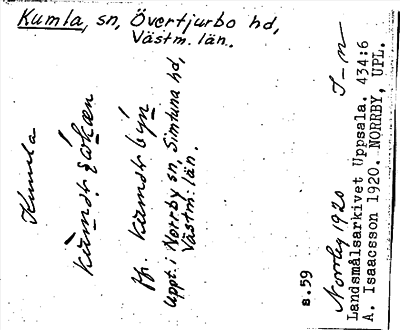 Kumla, sn, Övertjurbo hd,
Västm. län.
Kumla
Uppt. i Norrby sn, Simtuna hd,
Västm. län.
B.59
Norrby 1920
Landsmålsarkivet Uppsala. 434:6
A. Isaacsson 1920. NORRBY, UPL.